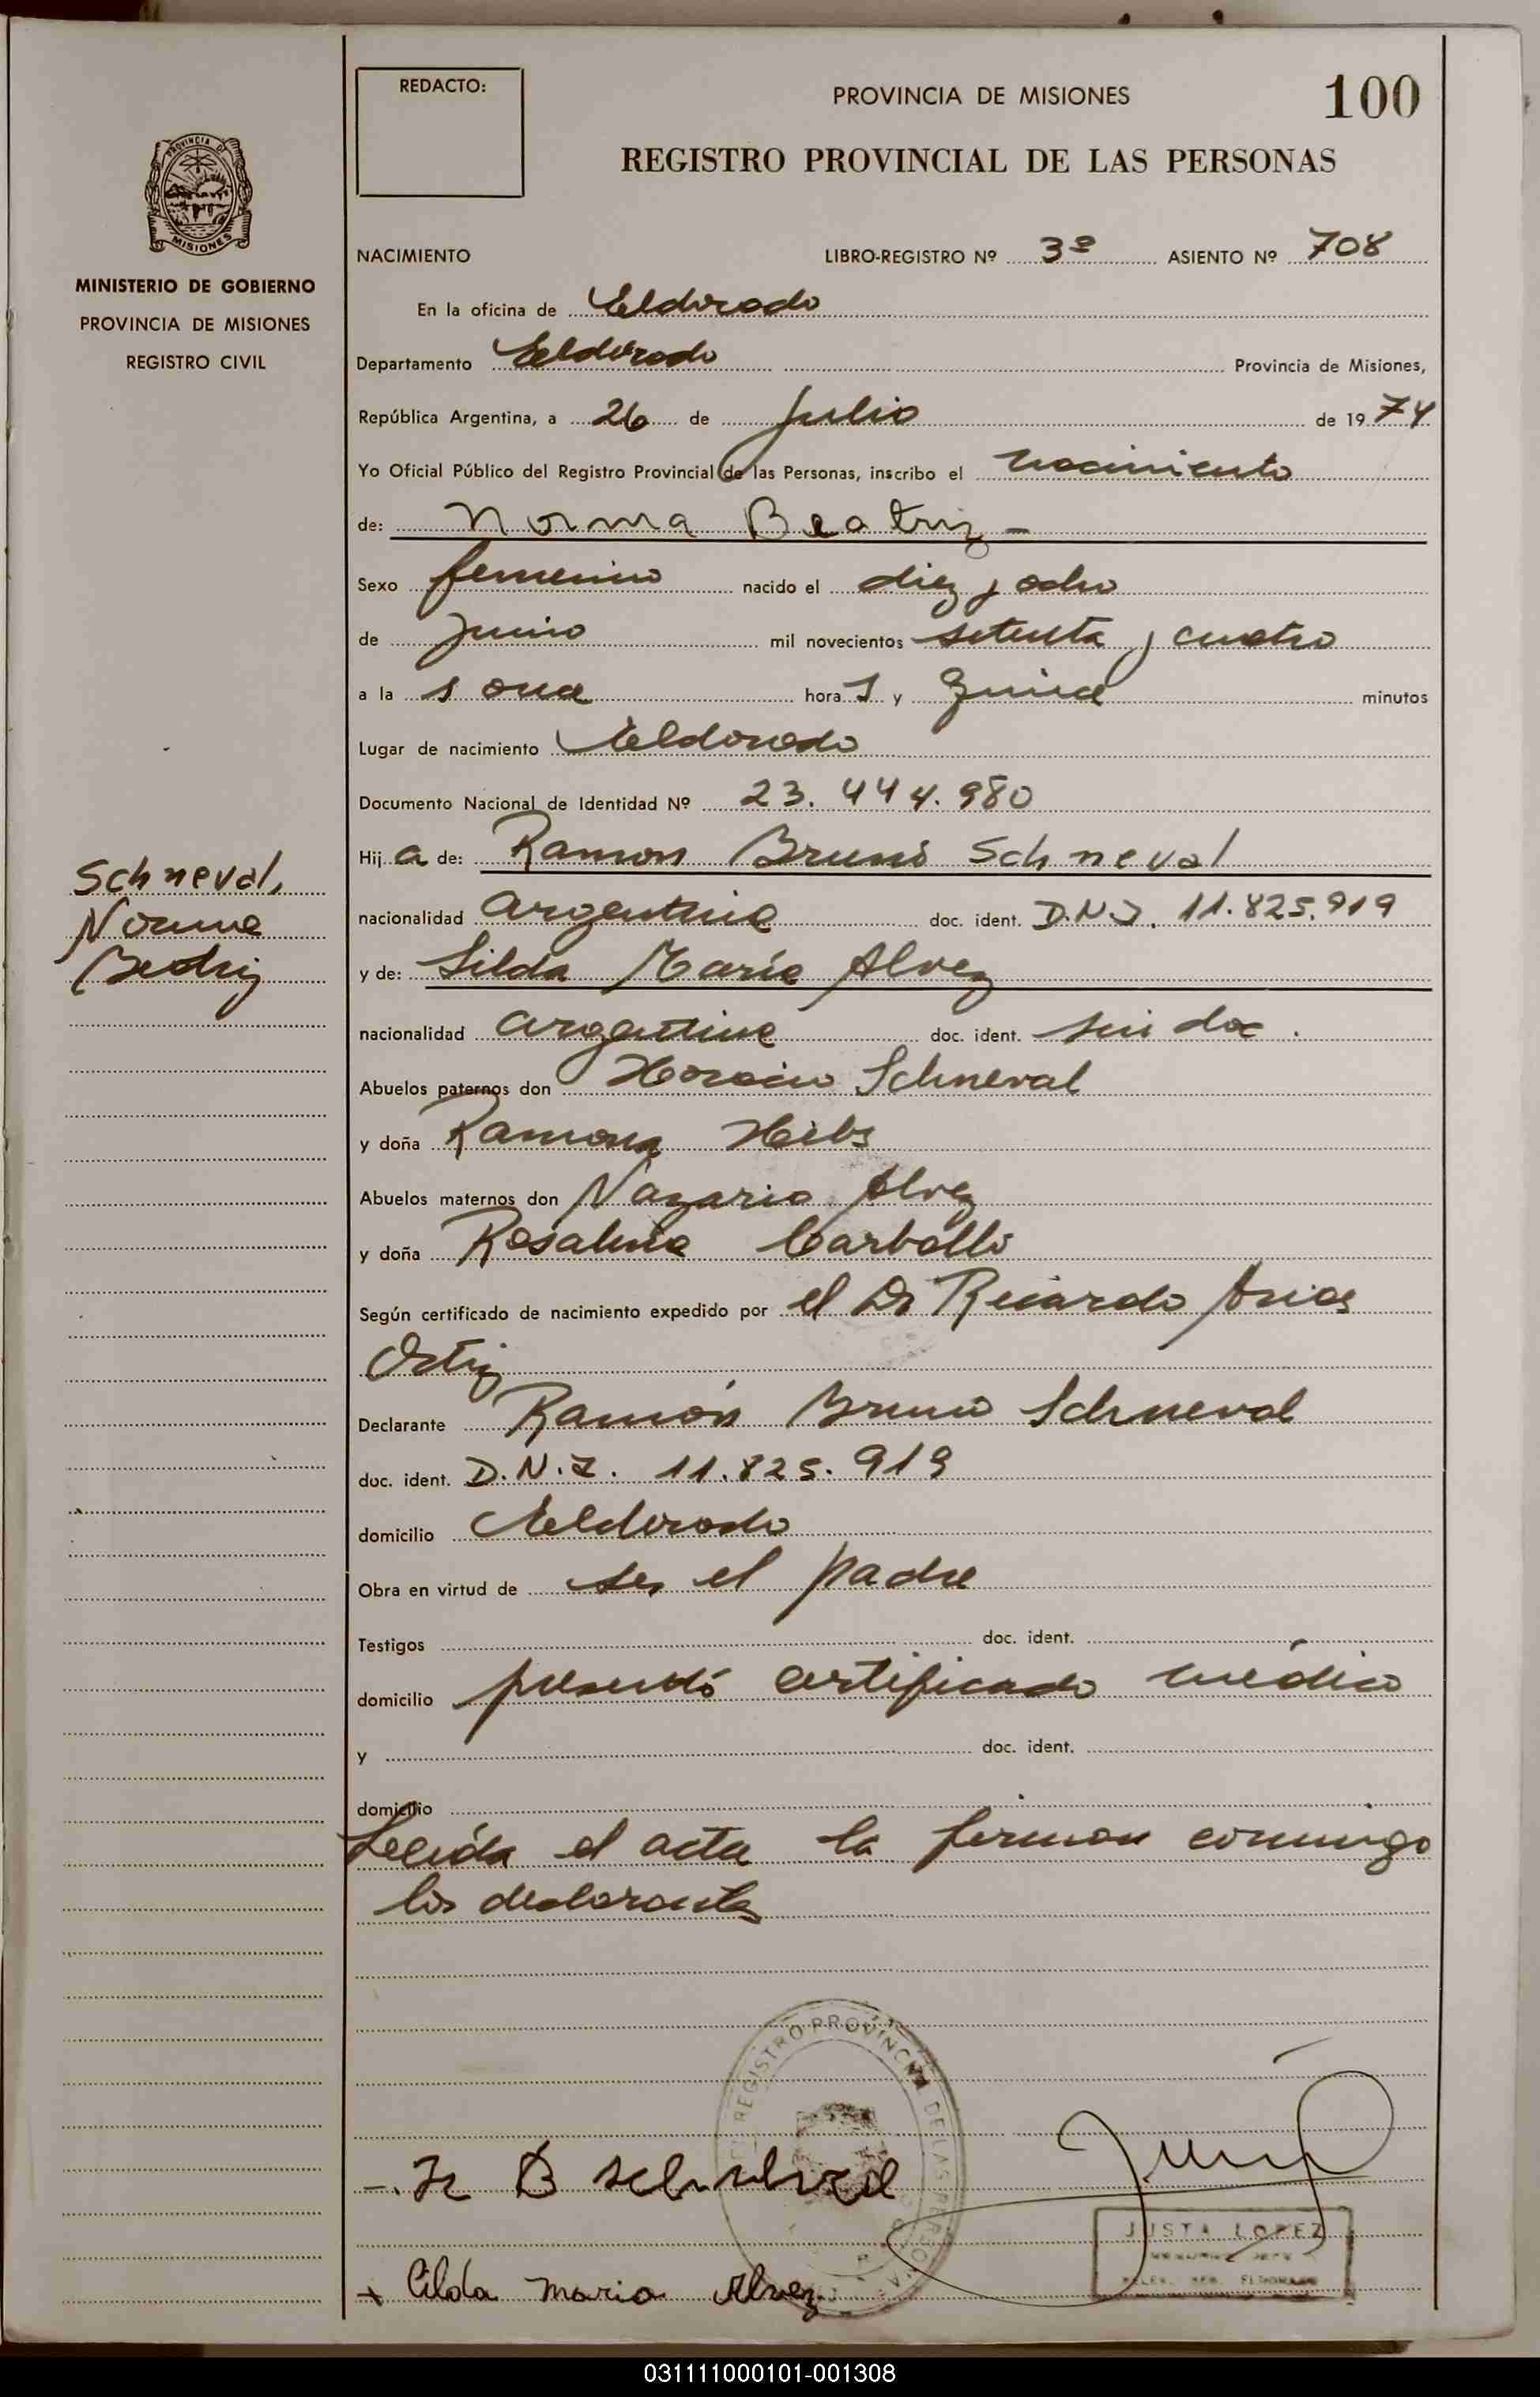 REDACTO:
PROVINCIA DE MISIONES
100
REGISTRO PROVINCIAL DE LAS PERSONAS
PROVINCIA DE
MISIONES
MINISTERIO DE GOBIERNO
PROVINCIA DE MISIONES
REGISTRO CIVIL
NACIMIENTO LIBRO-REGISTRO Nº 3º ASIENTO Nº 708
En la oficina de Eldorado
Departamento Eldorado Provincia de Misiones,
República Argentina, a 26 de Julio de 1974
Yo Oficial Público del Registro Provincial de las Personas, inscribo el nacimiento
de: Norma Beatriz -
Sexo femenino nacido el diez y ocho
de Junio mil novecientos setenta y cuatro
a la s once hora s y quince minutos
Lugar de nacimiento Eldorado
Documento Nacional de Identidad Nº 23.444.980
Hij a de: Ramon Bruno Schneval
Schneval,
Norma
Beatriz
nacionalidad argentina doc. ident. D.N.I. 11.825.919
y de: Silda María Alvez
nacionalidad argentina doc. ident. sin doc.
Abuelos paternos don Horacio Schneval
y doña Ramona
Abuelos maternos don Nazario Alvez
y doña Rosalina Carballo
Según certificado de nacimiento expedido por el Dr Ricardo Arias
Ortiz
Declarante Ramón Bruno Schneval
doc. ident. D.N.I. 11.825.919
domicilio Eldorado
Obra en virtud de ser el padre
Testigos doc. ident.
domicilio presentó certificado médico
y doc. ident.
domicilio
Leída el acta la firman conmigo
los declarantes
REGISTRO PROVINCIAL DE LAS PERSONAS
B
JUSTA LOPEZ
Cilda maria Alvez
031111000101-001308